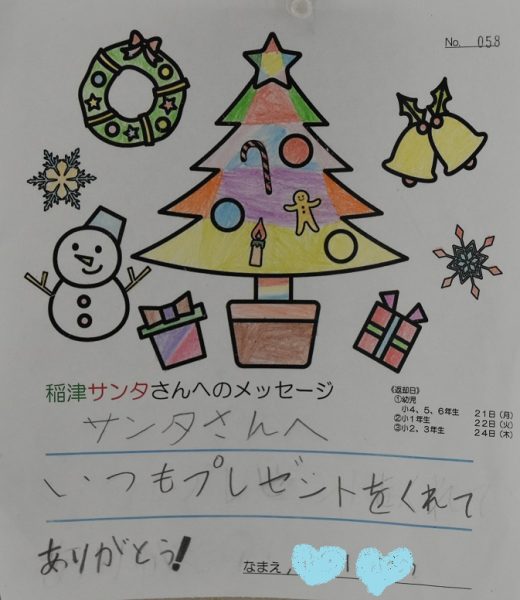 No. 058
稲津サンタさんへのメッセージ
《返却日》
①幼児
小4、5、6年生 21日(月)
②小1年生 22日(火)
③小2、3年生 24日(木)
サンタさんへ
いつもプレゼントをくれて
ありがとう!
なまえ